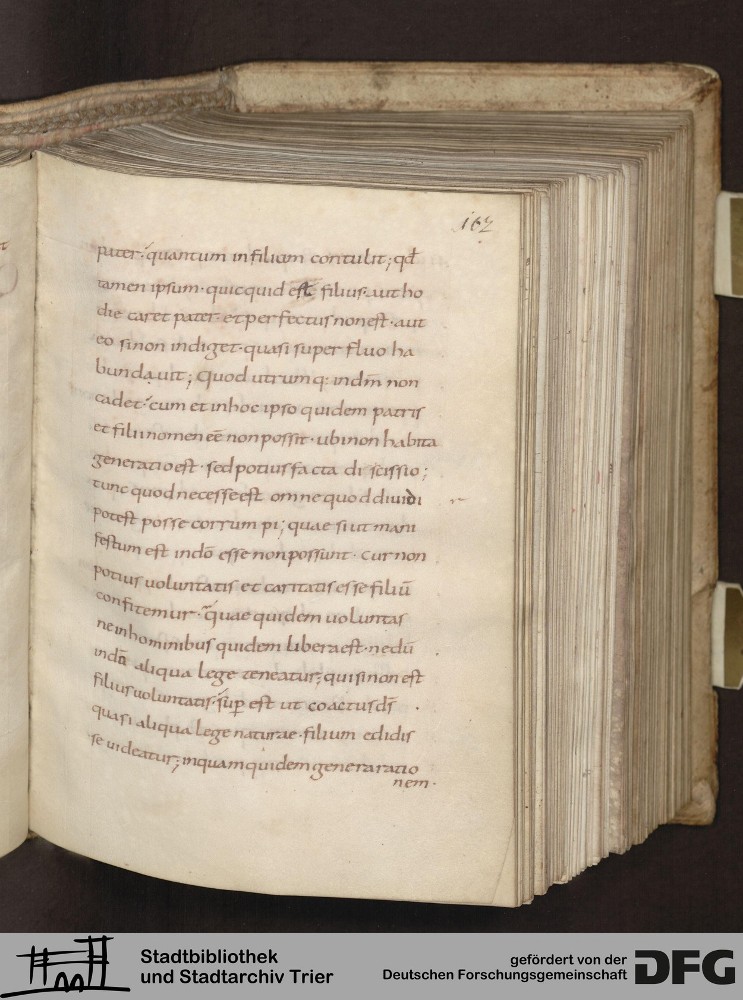 162
pater· quantum in filium contulit; qđ
tamen ipsum· quicquid est filius· aut ho
die caret pater· et perfectus non est· aut
eo si non indiget· quasi superfluo ha
bundauit; Quod utrumq: in dm̄ non
cadet· cum et in hoc ipso quidem patris
et filii nomen eē non possit· ubi non habita
generatio est· sed potius facta di scissio;
tunc quod necesse est omne quod diuidi
potest posse corrumpi; quae si ut mani
festum est in dō esse non possunt· cur non
potius uoluntatis et caritatis esse filiū
confitemur· quae quidem uoluntas
ne in hominibus quidem libera est· nedū
in dō aliqua lege teneatur; qui si non est
filius uoluntatis· sup est ut coactus ds̄
quasi aliqua lege naturae· filium edidis
se uideatur; in quam quidem generaratio
nem·
Stadtbibliothek
und Stadtarchiv Trier
gefördert von der
Deutschen Forschungsgemeinschaft
DFG